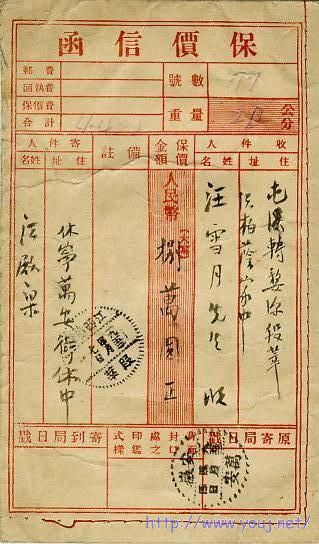 保價信函
號數
77
重量
20
公分
郵費
回執費
保價費
合計
收件人
住址
姓名
屯溪轉婺源段莘
汪雪月先生收
保價金額
人民幣
捌萬圓正
備註
寄件人
住址
姓名
休寧萬安街休中
江
原寄局日戳
封口處之印鑑式樣
寄到局日戳
段莘
萬安
http://www.youj.net/